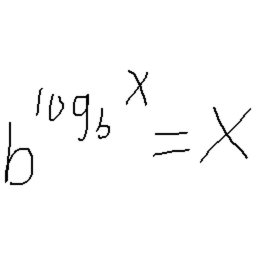 b^{log_b x} = x